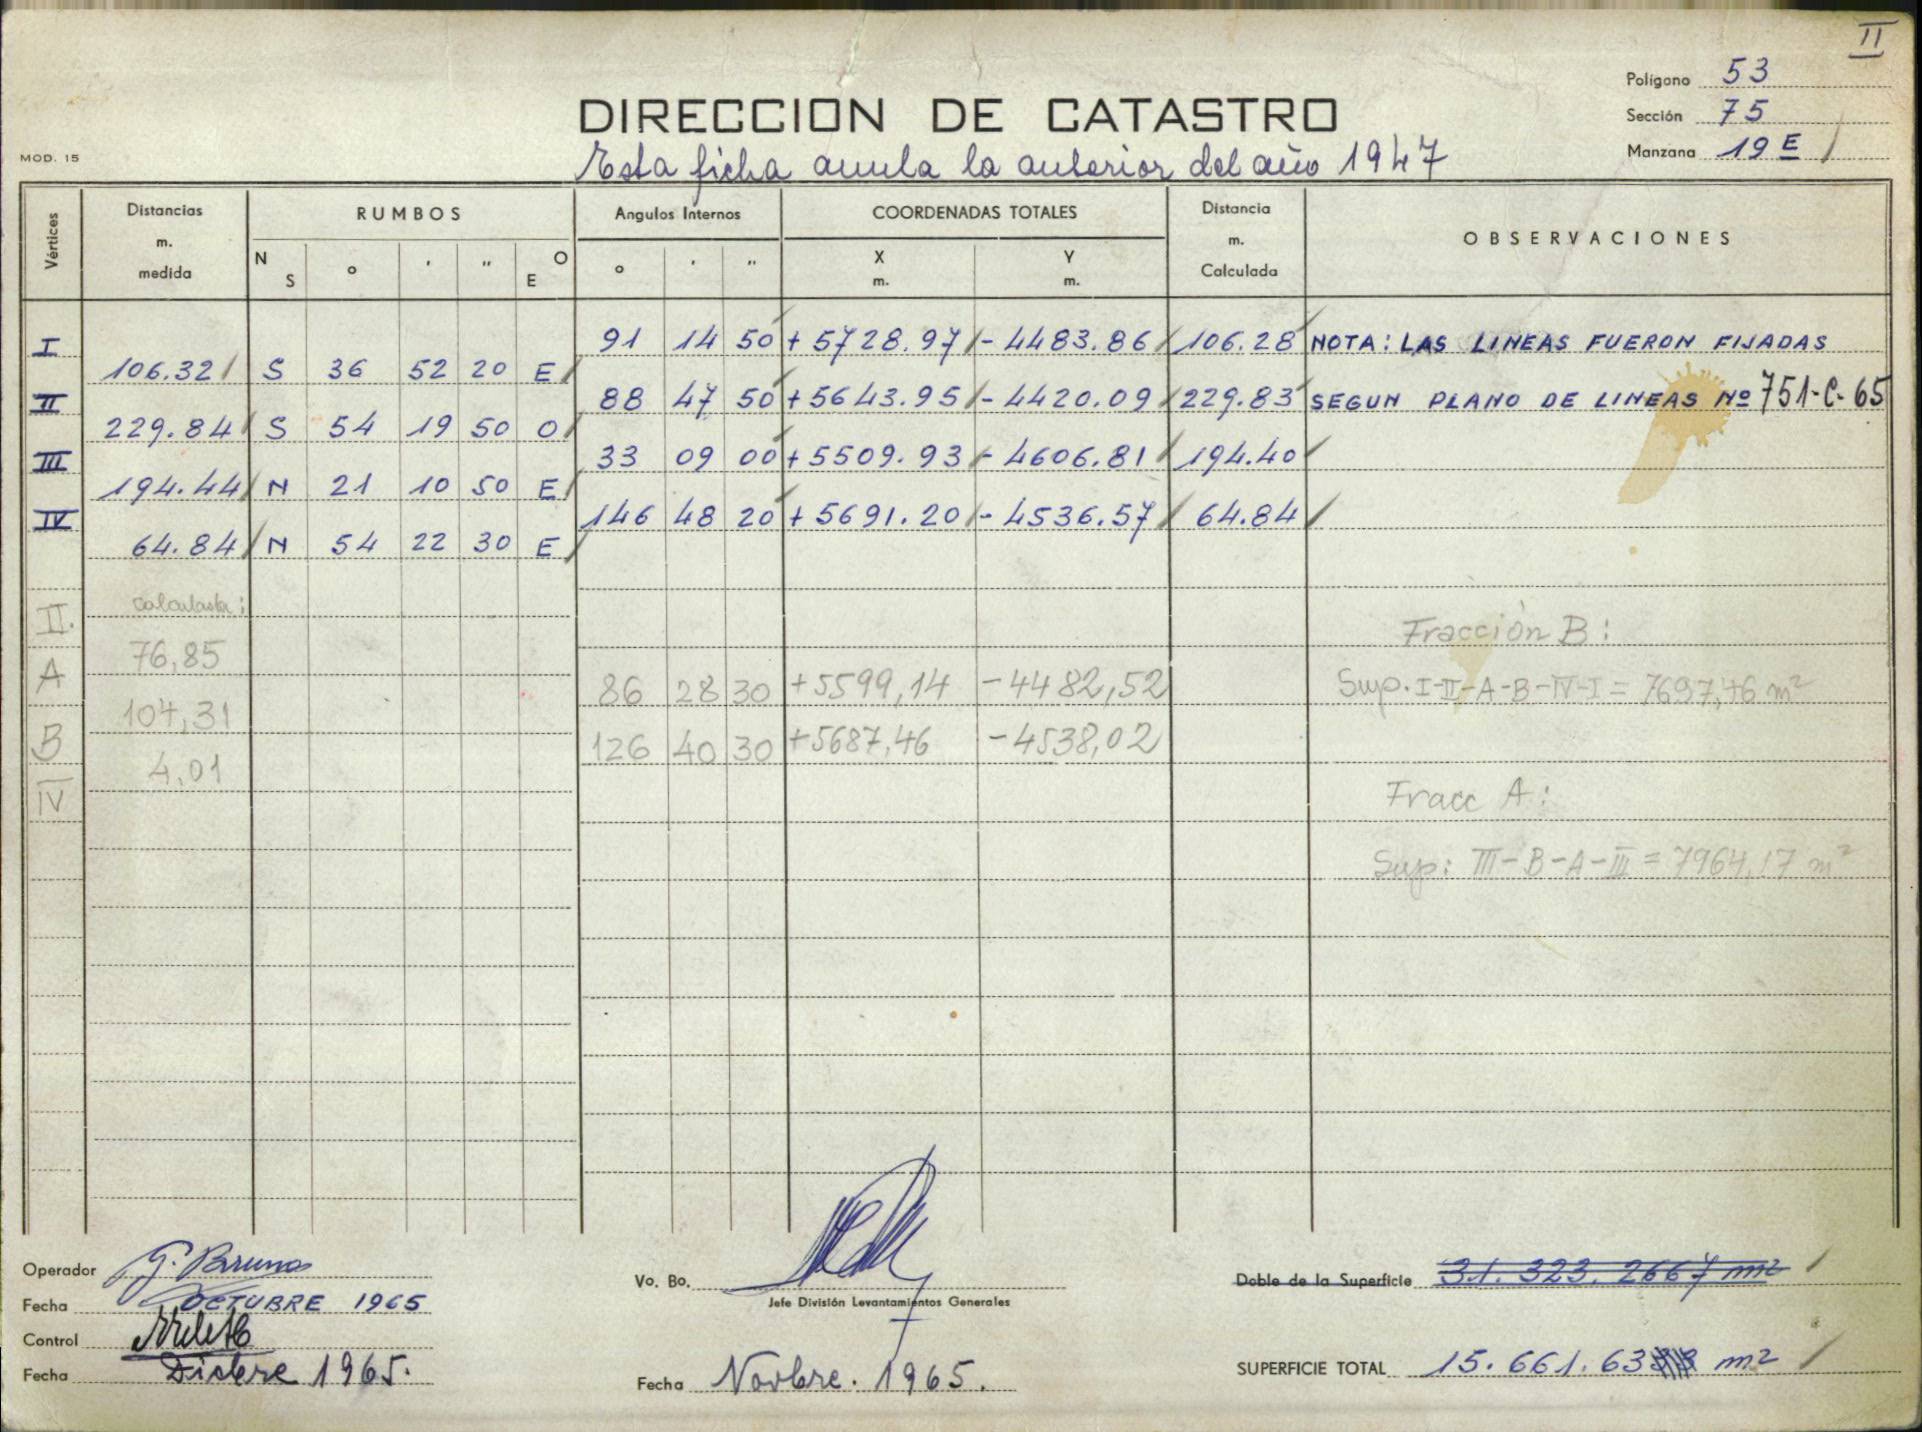 II
Polígono 53
Sección 75
Manzana 19 E
DIRECCION DE CATASTRO
MOD. 15
Esta ficha anula la anterior del año 1947
Vértices
Distancias m. medida
RUMBOS
Angulos Internos
COORDENADAS TOTALES
Distancia m. Calculada
OBSERVACIONES
N S ° ' " O E ° ' " X m. Y m.
I 91 14 50 + 5728.97 - 4483.86 106.28 NOTA: LAS LINEAS FUERON FIJADAS
106.32 S 36 52 20 E
II 88 47 50 + 5643.95 - 4420.09 229.83 SEGUN PLANO DE LINEAS Nº 751-C-65
229.84 S 54 19 50 O
III 33 09 00 + 5509.93 - 4606.81 194.40
194.44 N 21 10 50 E
IV 146 48 20 + 5691.20 - 4536.57 64.84
64.84 N 54 22 30 E
II.
Fracción B:
76,85
A 86 28 30 +5599,14 -4482,52 Sup. I-II-A-B-IV-I = 7697,46 m²
104,31
B 126 40 30 +5687,46 -4538,02
4,01
IV Fracc A:
Sup: III-B-A-III = 7964,17 m²
Operador G. Bruno
Fecha OCTUBRE 1965
Control
Fecha Dicbre 1965.
Vo. Bo.
Jefe División Levantamientos Generales
Fecha Novbre. 1965.
Doble de la Superficie 31.323.2667 m²
SUPERFICIE TOTAL 15.661.63 m²